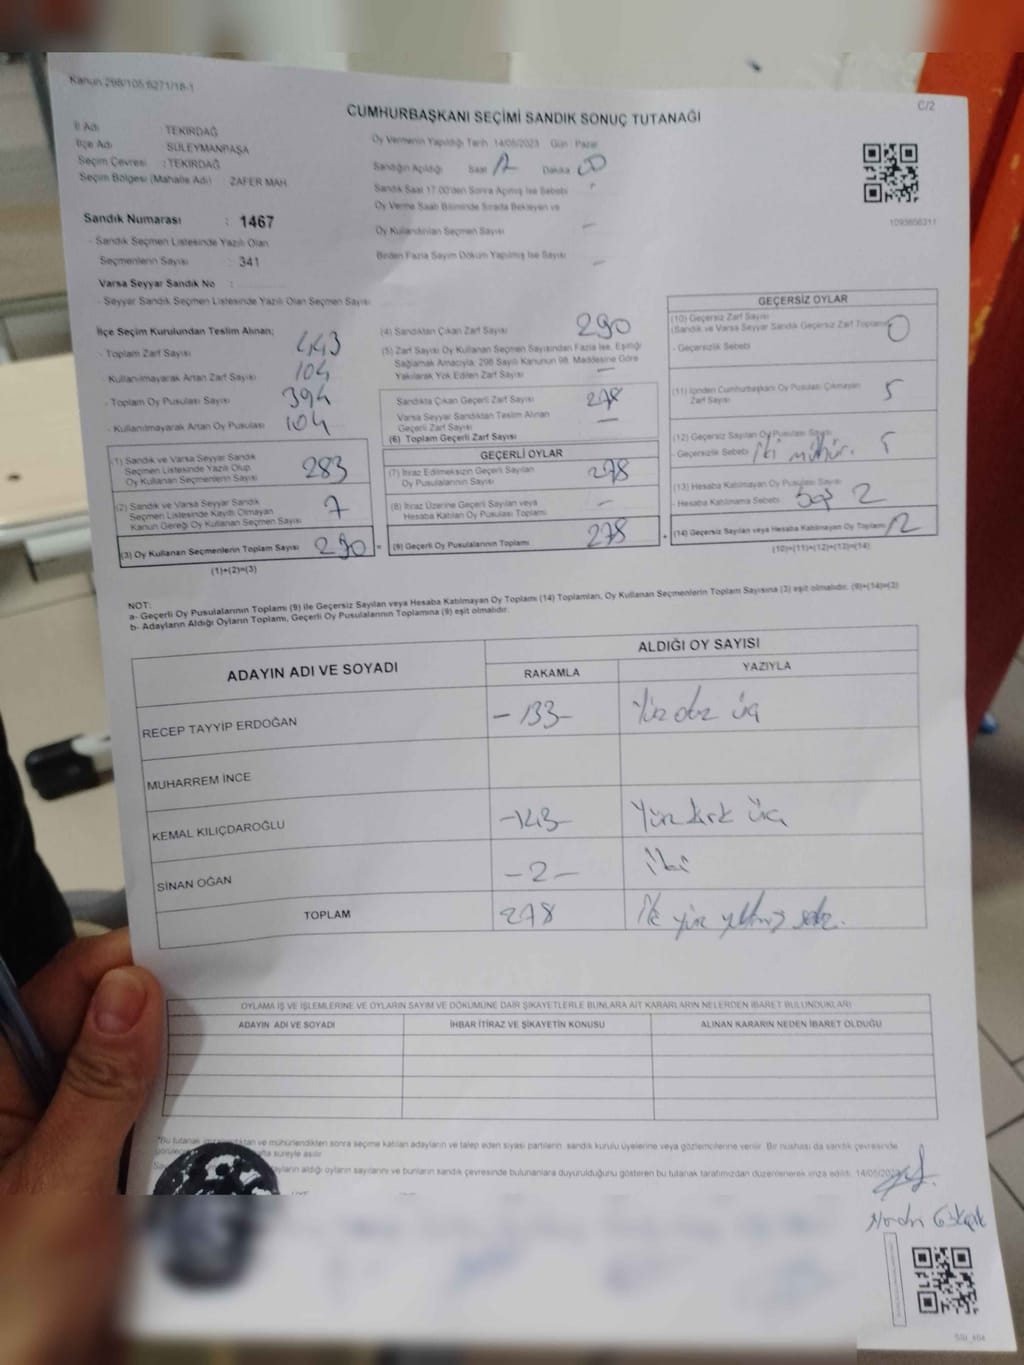 Kanun 298/105;6271/18-1
C/2
CUMHURBAŞKANI SEÇİMİ SANDIK SONUÇ TUTANAĞI
İl Adı : TEKİRDAĞ
İlçe Adı : SÜLEYMANPAŞA
Seçim Çevresi : TEKİRDAĞ
Seçim Bölgesi (Mahalle Adı) : ZAFER MAH
Oy Vermenin Yapıldığı Tarih 14/05/2023 Gün : Pazar
Sandığın Açıldığı Saat Dakika
Sandık Saat 17.00'den Sonra Açılmış İse Sebebi
Oy Verme Saati Bitiminde Sırada Bekleyen ve
Oy Kullandırılan Seçmen Sayısı —
Birden Fazla Sayım Döküm Yapılmış İse Sayısı —
Sandık Numarası : 1467
- Sandık Seçmen Listesinde Yazılı Olan
Seçmenlerin Sayısı : 341
Varsa Seyyar Sandık No :
- Seyyar Sandık Seçmen Listesinde Yazılı Olan Seçmen Sayısı
İlçe Seçim Kurulundan Teslim Alınan;
- Toplam Zarf Sayısı 443
- Kullanılmayarak Artan Zarf Sayısı 104
- Toplam Oy Pusulası Sayısı 394
- Kullanılmayarak Artan Oy Pusulası 104
(1) Sandık ve Varsa Seyyar Sandık
Seçmen Listesinde Yazılı Olup
Oy Kullanan Seçmenlerin Sayısı 283
(2) Sandık ve Varsa Seyyar Sandık
Seçmen Listesinde Kayıtlı Olmayan
Kanun Gereği Oy Kullanan Seçmen Sayısı 7
(3) Oy Kullanan Seçmenlerin Toplam Sayısı 290 =
(1)+(2)=(3)
(4) Sandıktan Çıkan Zarf Sayısı 290
(5) Zarf Sayısı Oy Kullanan Seçmen Sayısından Fazla İse, Eşitliği
Sağlamak Amacıyla, 298 Sayılı Kanunun 98. Maddesine Göre
Yakılarak Yok Edilen Zarf Sayısı —
Sandıkta Çıkan Geçerli Zarf Sayısı 278
Varsa Seyyar Sandıktan Teslim Alınan
Geçerli Zarf Sayısı —
(6) Toplam Geçerli Zarf Sayısı
GEÇERLİ OYLAR
(7) İtiraz Edilmeksizin Geçerli Sayılan
Oy Pusulasının Sayısı 278
(8) İtiraz Üzerine Geçerli Sayılan veya
Hesaba Katılan Oy Pusulası Toplamı —
(9) Geçerli Oy Pusulalarının Toplamı 278 +
1093656311
GEÇERSİZ OYLAR
(10) Geçersiz Zarf Sayısı
(Sandık ve Varsa Seyyar Sandık Geçersiz Zarf Toplamı) 0
- Geçersizlik Sebebi
(11) İçinden Cumhurbaşkanı Oy Pusulası Çıkmayan
Zarf Sayısı 5
(12) Geçersiz Sayılan Oy Pusulası Sayısı
- Geçersizlik Sebebi iki mühür. 5
(13) Hesaba Katılmayan Oy Pusulası Sayısı
Hesaba Katılmama Sebebi Boş 2
(14) Geçersiz Sayılan veya Hesaba Katılmayan Oy Toplamı 12
(10)+(11)+(12)+(13)=(14)
NOT:
a- Geçerli Oy Pusulalarının Toplamı (9) ile Geçersiz Sayılan veya Hesaba Katılmayan Oy Toplamı (14) Toplamları, Oy Kullanan Seçmenlerin Toplam Sayısına (3) eşit olmalıdır. (9)+(14)=(3)
b- Adayların Aldığı Oyların Toplamı, Geçerli Oy Pusulalarının Toplamına (9) eşit olmalıdır.
ADAYIN ADI VE SOYADI
ALDIĞI OY SAYISI
RAKAMLA YAZIYLA
RECEP TAYYİP ERDOĞAN -133- Yüz otuz üç
MUHARREM İNCE
KEMAL KILIÇDAROĞLU -143- Yüz kırk üç
SİNAN OĞAN -2- iki
TOPLAM 278 iki yüz yetmiş sekiz.
OYLAMA İŞ VE İŞLEMLERİNE VE OYLARIN SAYIM VE DÖKÜMÜNE DAİR ŞİKAYETLERLE BUNLARA AİT KARARLARIN NELERDEN İBARET BULUNDUKLARI
ADAYIN ADI VE SOYADI İHBAR İTİRAZ VE ŞİKAYETİN KONUSU ALINAN KARARIN NEDEN İBARET OLDUĞU
"Bu tutanak ve mühürlendikten sonra seçime katılan adayların ve talep eden siyasi partilerin, sandık kurulu üyelerine veya gözlemcilerine verilir. Bir nüshası da sandık çevresinde
süreyle asılır.
adayların aldığı oyların sayılarını ve bunların sandık çevresinde bulunanlara duyurulduğunu gösteren bu tutanak tarafımızdan düzenlenerek imza edildi. 14/05/2023